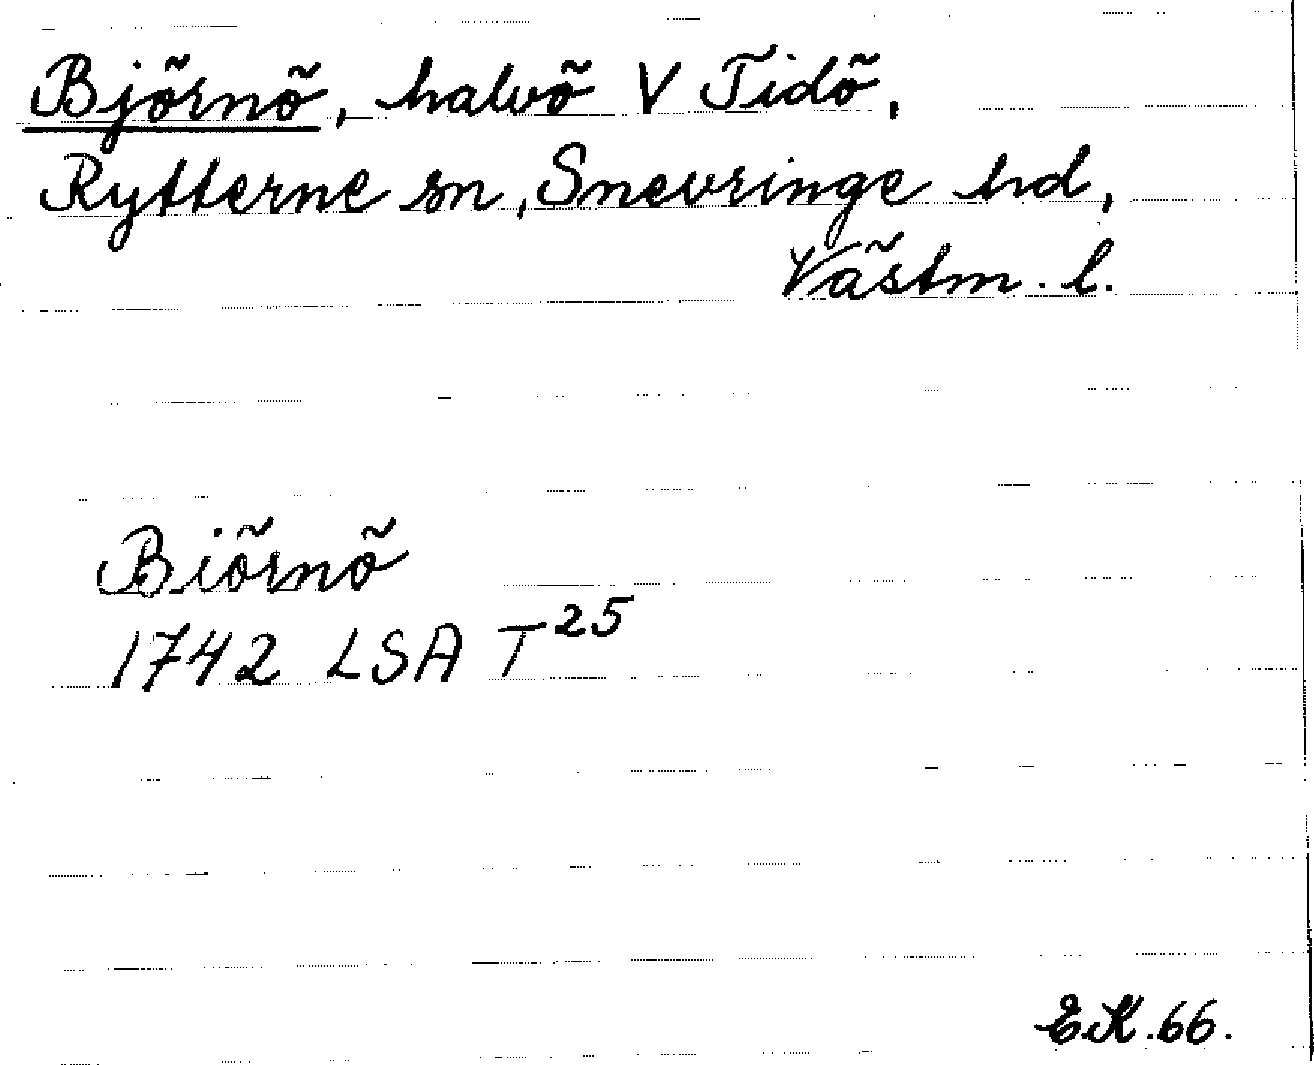 Björnö, halvö V Tidö,
Rytterne sn, Snevringe hd,
Västm. l.
Biörnö
1742 LSA T²⁵
EK. 66.